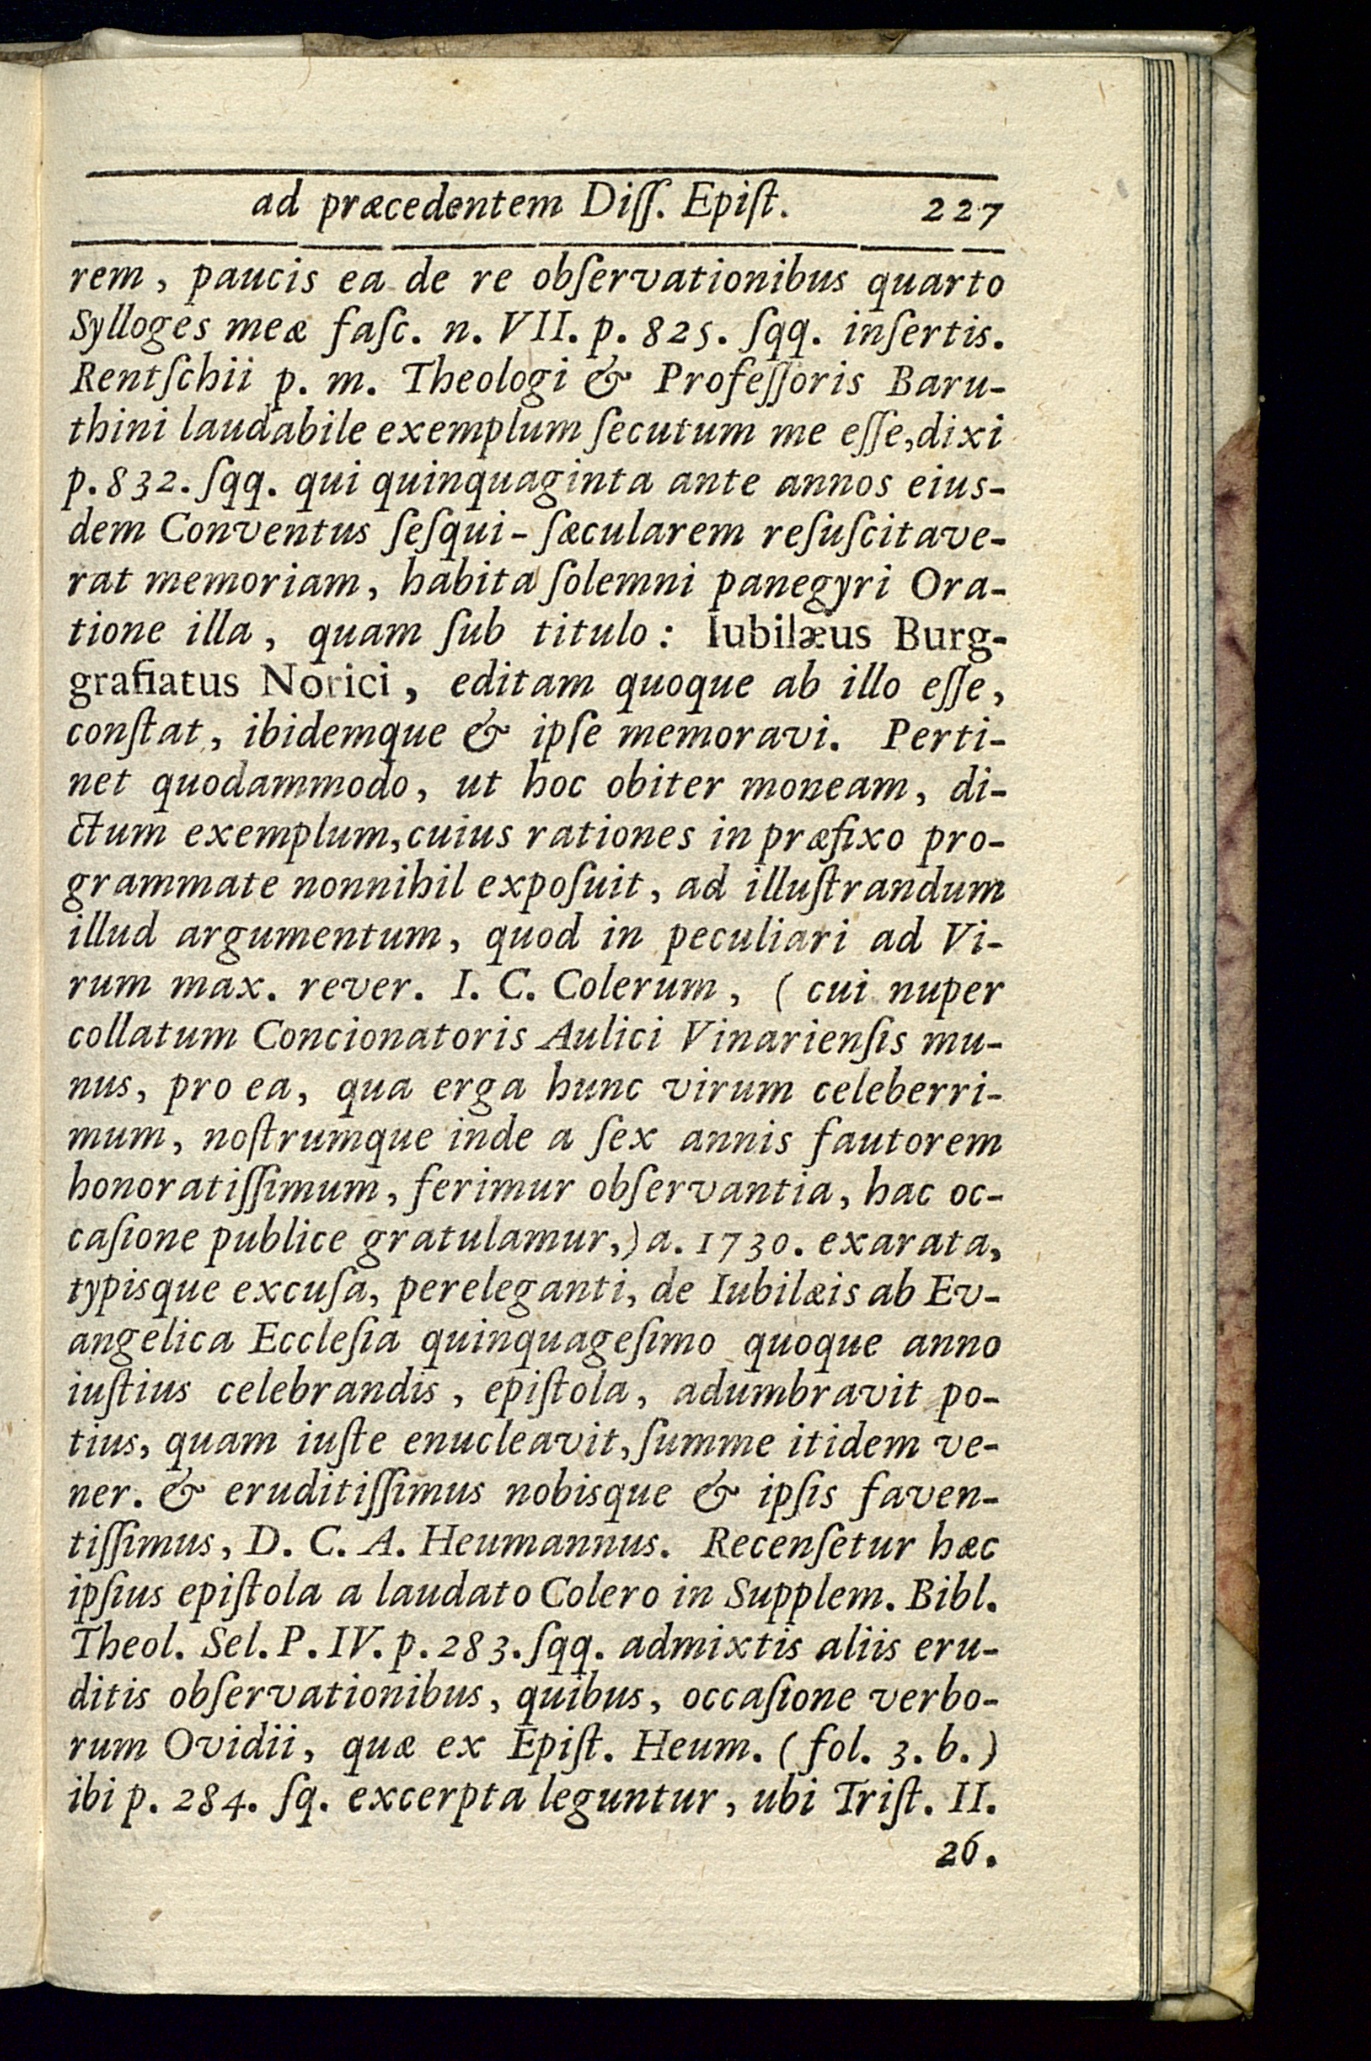 ad præcedentem Diſſ. Epiſt. 227
rem, paucis ea de re obſervationibus quarto
Sylloges meæ faſc. n. VII. p. 825. ſqq. inſertis.
Rentſchii p. m. Theologi & Profeſſoris Baru-
thini laudabile exemplum ſecutum me eſſe, dixi
p. 832. ſqq. qui quinquaginta ante annos eius-
dem Conventus ſeſqui-ſæcularem reſuſcitave-
rat memoriam, habita ſolemni panegyri Ora-
tione illa, quam ſub titulo: Iubilæus Burg-
grafiatus Norici, editam quoque ab illo eſſe,
conſtat, ibidemque & ipſe memoravi. Perti-
net quodammodo, ut hoc obiter moneam, di-
ctum exemplum, cuius rationes in præfixo pro-
grammate nonnihil expoſuit, ad illuſtrandum
illud argumentum, quod in peculiari ad Vi-
rum max. rever. I. C. Colerum, (cui nuper
collatum Concionatoris Aulici Vinarienſis mu-
nus, pro ea, qua erga hunc virum celeberri-
mum, noſtrumque inde a ſex annis fautorem
honoratiſſimum, ferimur obſervantia, hac oc-
caſione publice gratulamur,) a. 1730. exarata,
typisque excuſa, pereleganti, de Iubilæis ab Ev-
angelica Eccleſia quinquageſimo quoque anno
iuſtius celebrandis, epiſtola, adumbravit po-
tius, quam iuſte enucleavit, ſumme itidem ve-
ner. & eruditiſſimus nobisque & ipſis faven-
tiſſimus, D. C. A. Heumannus. Recenſetur hæc
ipſius epiſtola a laudato Colero in Supplem. Bibl.
Theol. Sel. P. IV. p. 283. ſqq. admixtis aliis eru-
ditis obſervationibus, quibus, occaſione verbo-
rum Ovidii, quæ ex Epiſt. Heum. (fol. 3. b.)
ibi p. 284. ſq. excerpta leguntur, ubi Triſt. II.
26.